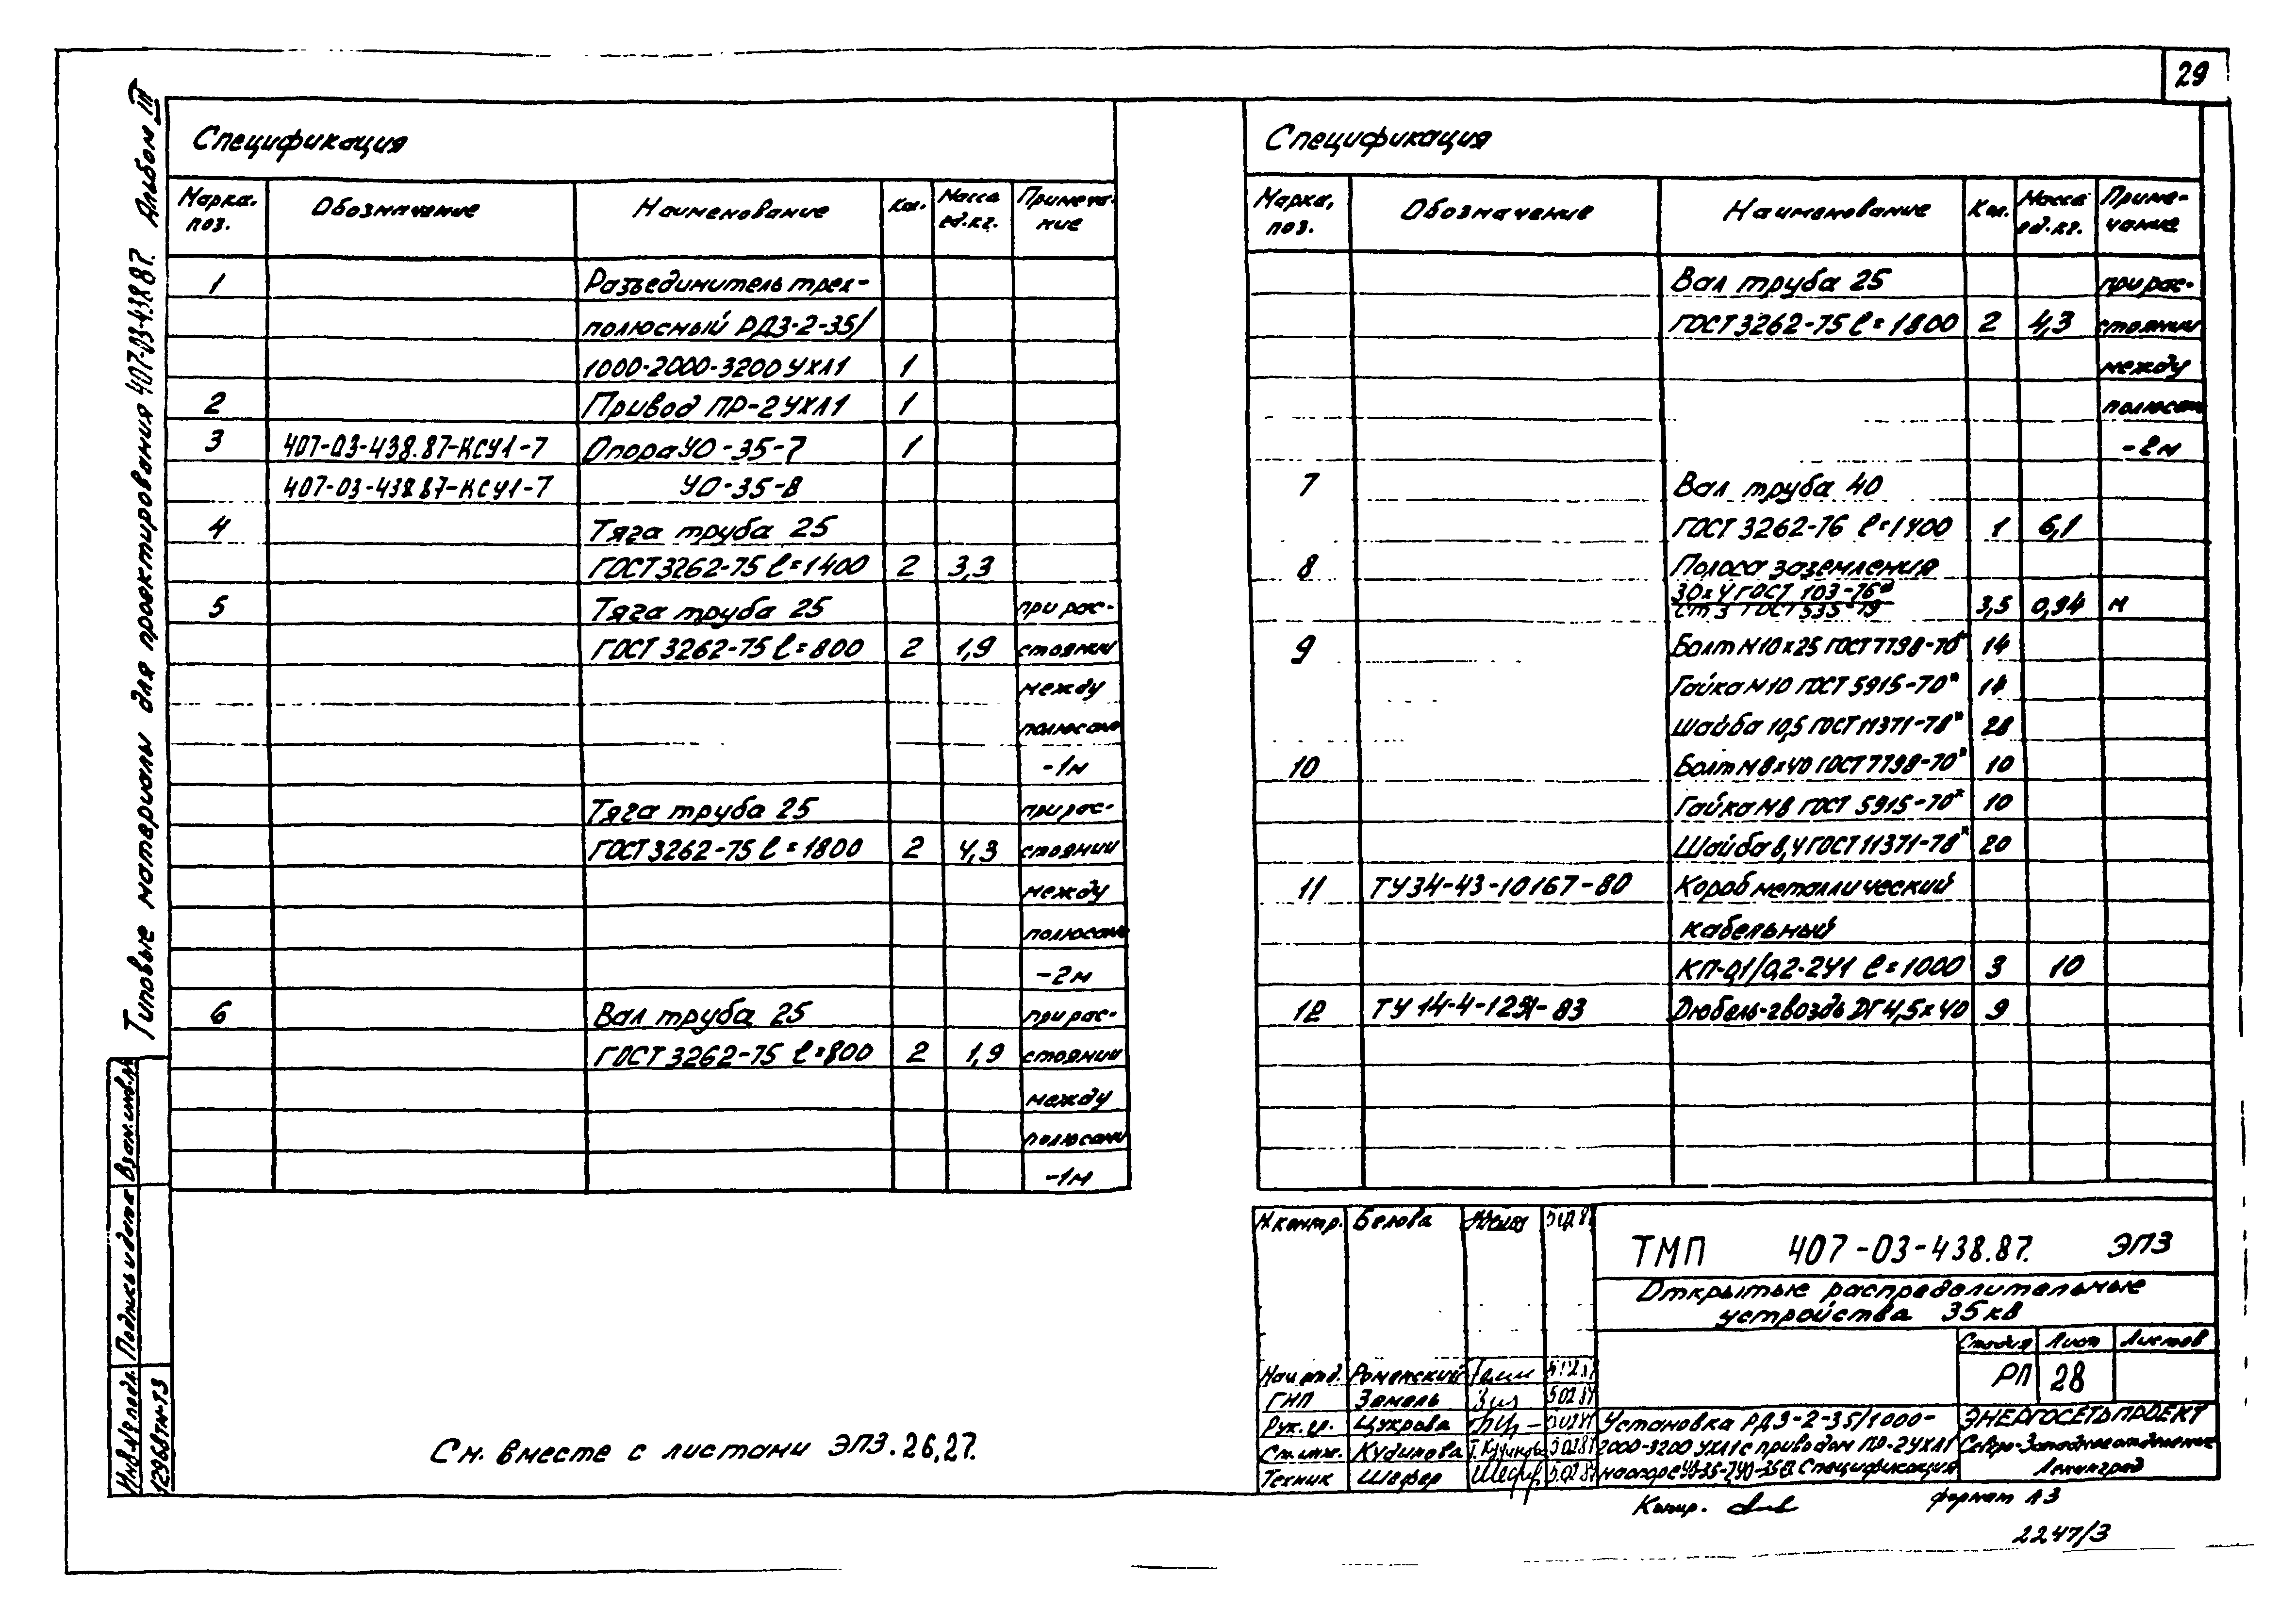 29
Типовые материалы для проектирования 407-03-438.87. Альбом III
Спецификация
Марка. поз. Обозначение Наименование Кол. Масса ед.кг. Примечание
1 Разъединитель трех-
полюсный РДЗ-2-35/
1000-2000-3200 УХЛ1 1
2 Привод ПР-2УХЛ1 1
3 407-03-438.87-КСУ1-7 Опора УО-35-7 1
407-03-438.87-КСУ1-7 УО-35-8
4 Тяга труба 25
ГОСТ 3262-75 ℓ=1400 2 3,3
5 Тяга труба 25 при рас-
ГОСТ 3262-75 ℓ=800 2 1,9 стоянии
между
полюсами
-1м
Тяга труба 25 при рас-
ГОСТ 3262-75 ℓ=1800 2 4,3 стоянии
между
полюсами
-2м
6 Вал труба 25 при рас-
ГОСТ 3262-75 ℓ=800 2 1,9 стоянии
между
полюсами
-1м
Спецификация
Марка, поз. Обозначение Наименование Кол. Масса ед.кг. Приме-чание
Вал труба 25 при рас-
ГОСТ 3262-75 ℓ=1800 2 4,3 стоянии
между
полюсами
-2м
7 Вал труба 40
ГОСТ 3262-76 ℓ=1400 1 6,1
8 Полоса заземления
30х4 ГОСТ 103-76*
Ст 3 ГОСТ 535-79 3,5 0,94 м
9 Болт М10х25 ГОСТ 7798-70* 14
Гайка М10 ГОСТ 5915-70* 14
Шайба 10,5 ГОСТ 11371-78* 28
10 Болт М8х40 ГОСТ 7798-70* 10
Гайка М8 ГОСТ 5915-70* 10
Шайба 8,4 ГОСТ 11371-78* 20
11 ТУ34-43-10167-80 Короб металлический
кабельный
КП-0,1/0,2-2У1 ℓ=1000 3 10
12 ТУ 14-4-1231-83 Дюбель-гвоздь ДГ 4,5х40 9
См. вместе с листами ЭПЗ.26,27.
Взам.инв.№
Подпись и дата
Инв.№ подл.
12968тм-т3
Н.контр. Белова
Нач.отд. Роменский
ГИП Земель 5.02.87
Рук.гр. Цукрова
Ст.инж. Кудинова 5.02.87
Техник Шефер Шефер 5.02.87
ТМП 407-03-438.87. ЭПЗ
Открытые распределительные
устройства 35 кВ
Стадия Лист Листов
РП 28
Установка РДЗ-2-35/1000-
2000-3200 УХЛ1 с приводом ПР-2УХЛ1
на опоре УО-35-7, УО-35-8. Спецификация
ЭНЕРГОСЕТЬПРОЕКТ
Северо-Западное отделение
Ленинград
Копир.
формат А3
2247/3